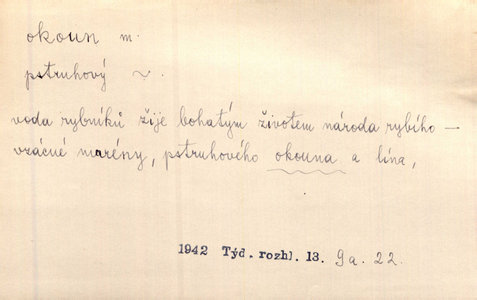 okoun m.
pstruhový ~.
voda rybníků žije bohatým životem národa rybího —
vzácné marény, pstruhového okouna a lína,
1942 Týd. rozhl. 13. 9a. 22.